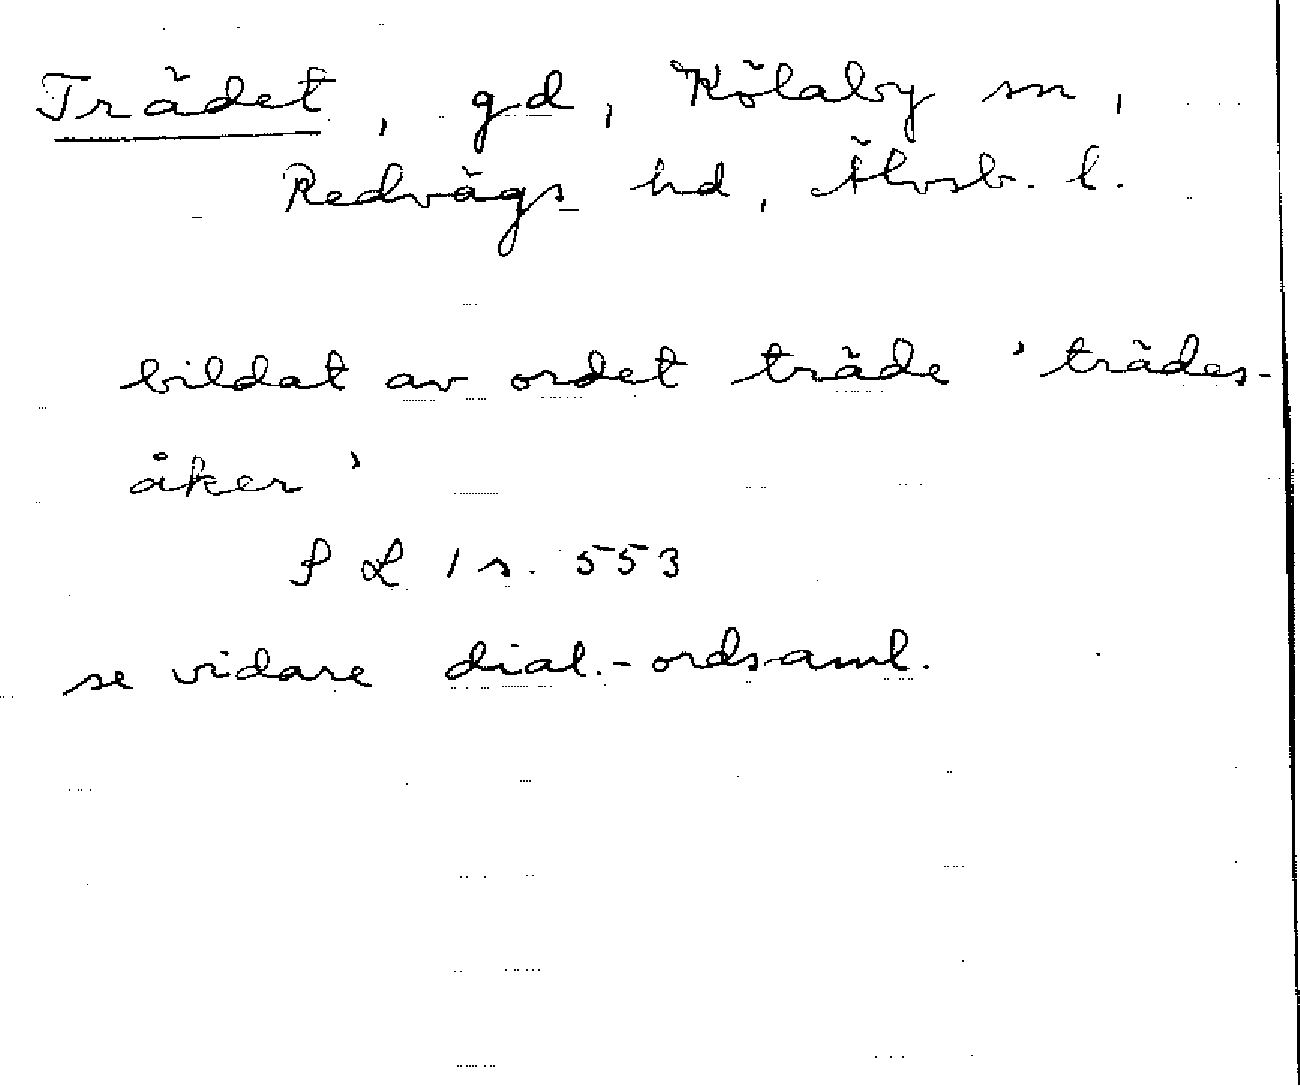 Trädet, gd, Kölaby sn,
Redvägs hd, Älvsb. l.
bildat av ordet träde 'trädes-
åker'
P L 1 s. 553
se vidare dial.-ordsaml.